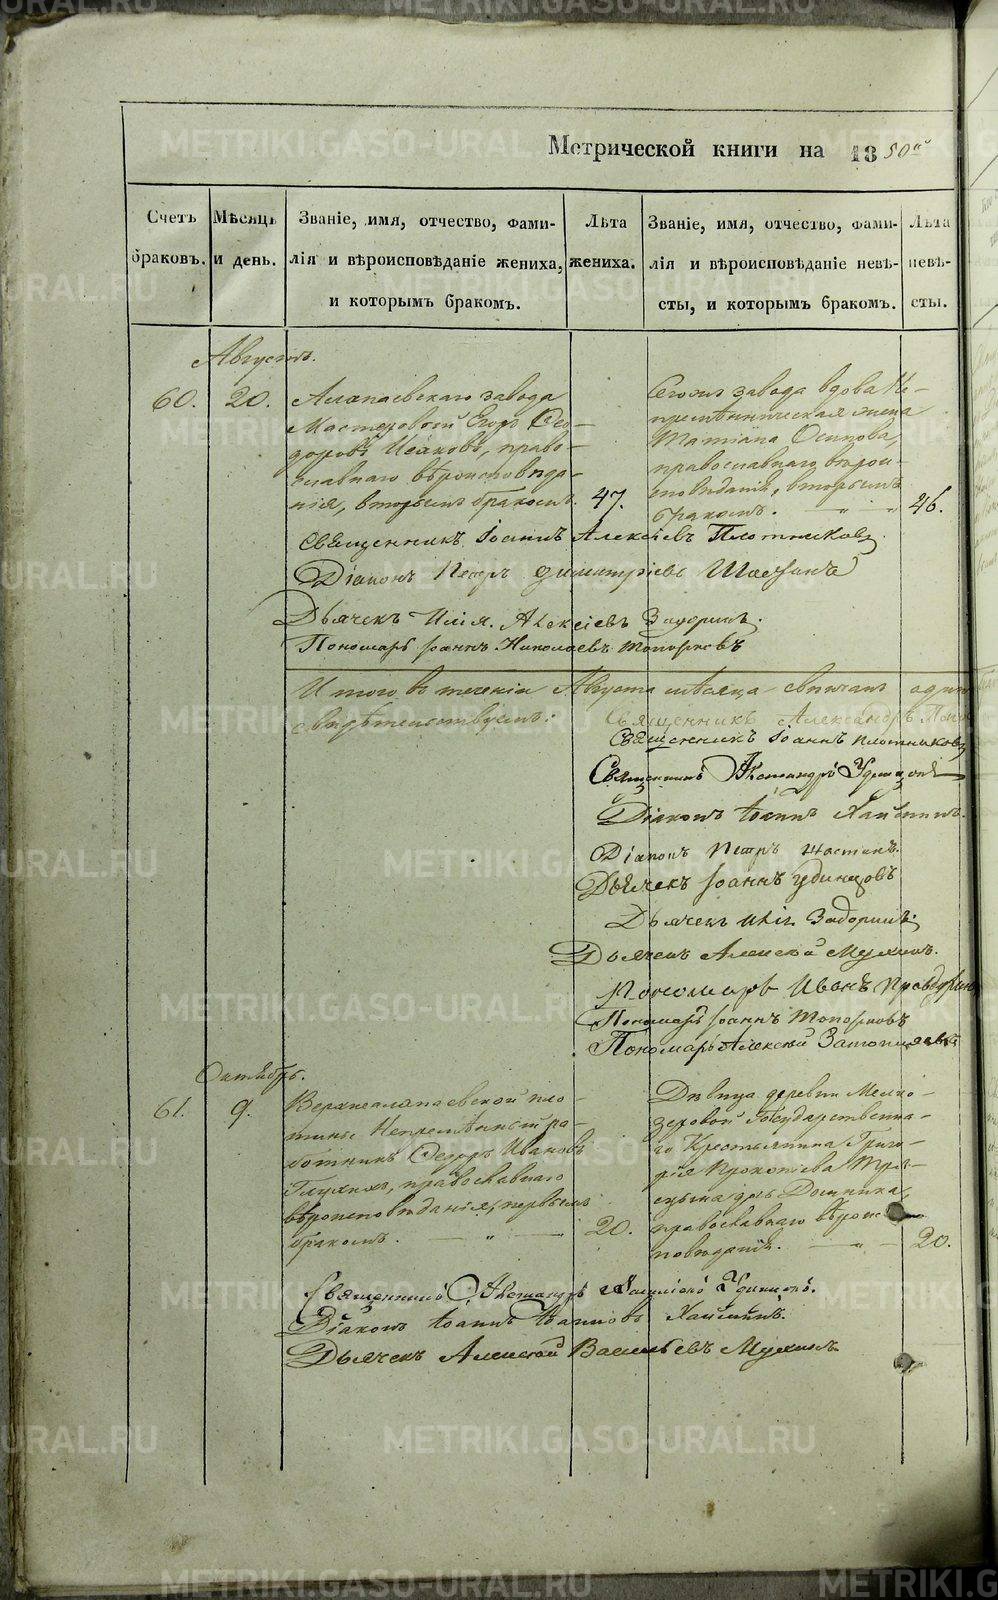 Метрической книги на 1850й
Счетъ браковъ.
Мѣсяцъ и день.
Званіе, имя, отчество, фами-
лія и вѣроисповѣданіе жениха,
и которымъ бракомъ.
Лѣта
жениха.
Званіе, имя, отчество, фами-
лія и вѣроисповѣданіе невѣ-
сты, и которымъ бракомъ.
Лѣта
невѣ-
сты.
Августъ.
60.
20.
Алапаевскаго завода
Мастеровой Егоръ Ѳео-
доровъ Исаковъ, право-
славнаго вѣроисповѣда-
нія, вторымъ бракомъ.
47.
Сегожъ завода вдова Не-
премѣнническая жена
Татіана Осипова,
православнаго вѣрои-
сповѣданія, вторымъ
бракомъ.
46.
Священникъ Іоаннъ Алексіевъ Плотниковъ
Діаконъ Петръ Димитріевъ
Дьячекъ Илія Алексіевъ Задоринъ.
Пономарь Іоаннъ Николаевъ Топорковъ
Итого въ теченіи Августа мѣсяца свѣнчанъ одинъ
свидѣтельствуемъ:
Священникъ Александръ
Священникъ Іоаннъ Плотниковъ
Священникъ Александръ Удинцовъ
Діаконъ Іоаннъ
Діаконъ Петръ
Дьячекъ Іоаннъ Удинцовъ
Дьячекъ Илія Задоринъ.
Дьячекъ Алексѣй Мухинъ.
Пономарь Иванъ
Пономарь Іоаннъ Топорковъ
Пономарь Алексѣй
Октябрь.
61.
9.
Верхнеалапаевской пло-
тины Непремѣнный ра-
ботникъ Ѳедоръ Ивановъ
Глухихъ, православнаго
вѣроисповѣданія, первымъ
бракомъ.
20.
Дѣвица деревни Мелко-
зеровой Государственна-
го Крестьянина Григо-
рія Прокопіева
дочь Домника,
православнаго вѣроис-
повѣданія.
20.
Священникъ Александръ Удинцовъ.
Діаконъ Іоаннъ Ивановъ
Дьячекъ Алексѣй Васильевъ Мухинъ
METRIKI.GASO-URAL.RU